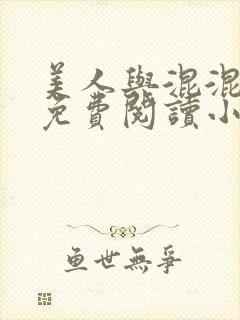 美人與混混
免費閱讀小
魚世無爭